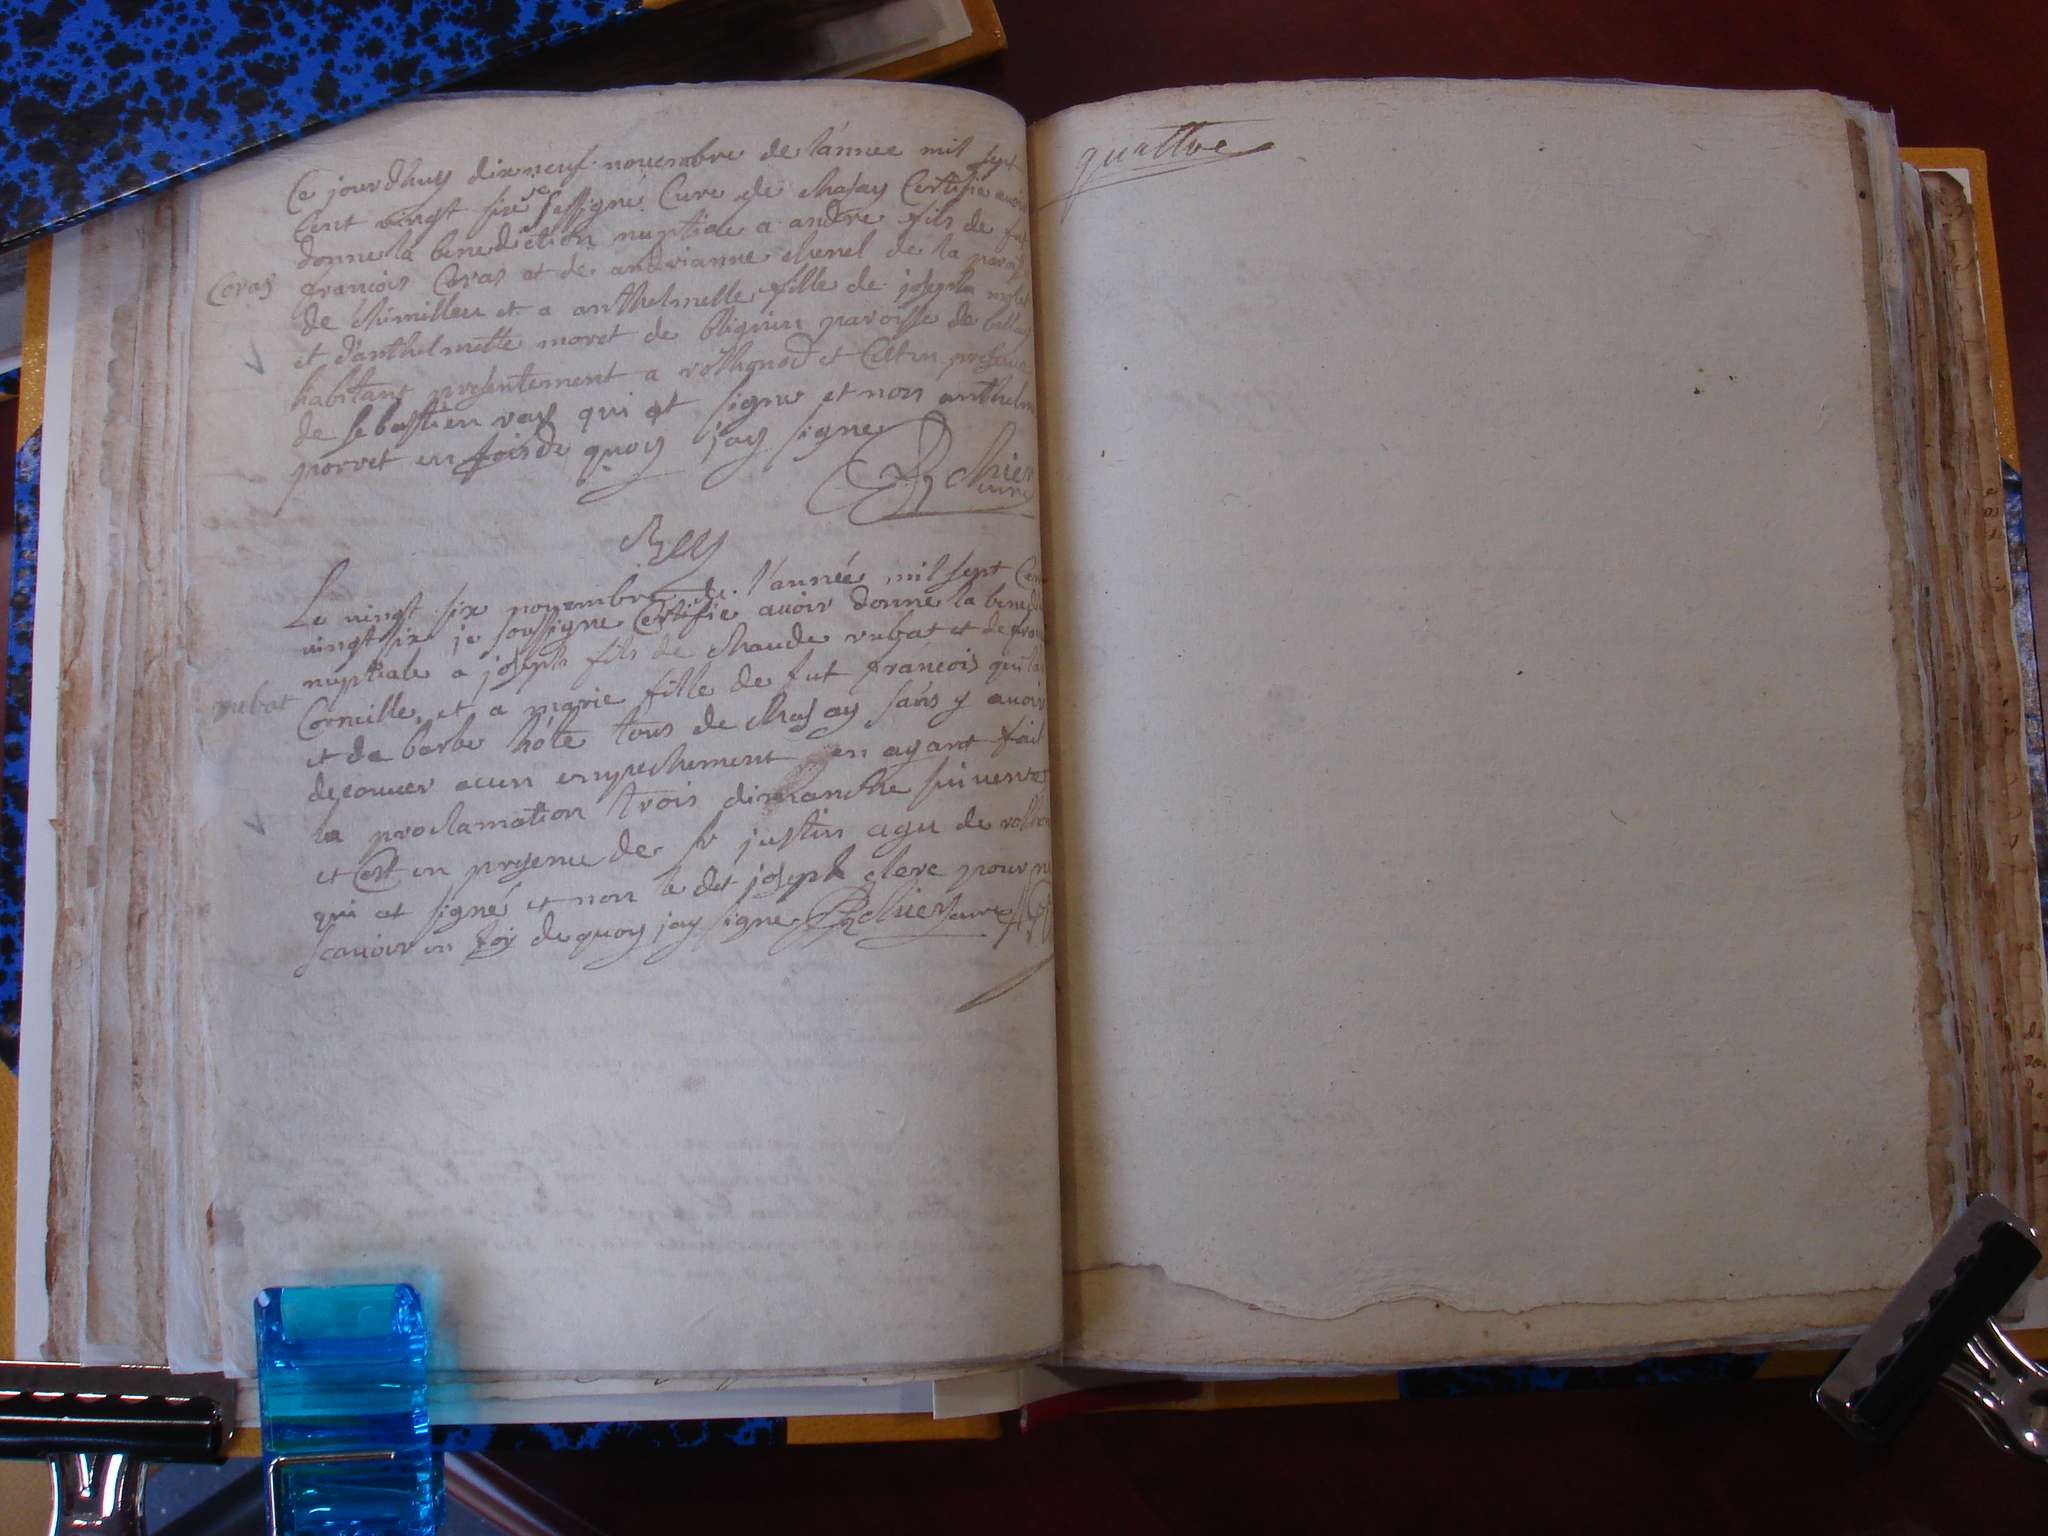 Ce jourdhuy dixneuf novembre de l'annee mil sept
Cent vingt six je soussigné Curé de chasay Certifie avoir
donne la benediction nuptiale a andre fils de fut
Ceras
francois Ceras et de andrianne chenel de la
de chimillieu et a anthelmette fille de joseph
et d'anthelmette moret de bligniu paroisse de
habitant presentement a rothonod et C'est en
de sebastien vay qui at signe et non
en foid de quoy j'ay signe
Rochier
curé
Rey
Le vingt six novembre de l'année mil sept Cent
vingt six je soussigne Certifie avoir donne la
nuptiale a joseph fils de claude rubat et de
rubat
Corneille et a marie fille de fut francois
et de barbe hôte tous de chasay sans y avoir
decouver acun empechement en ayant fait
la proclamation trois dimanche suivent
et C'est en presence de sr justin agu de
qui at signé et non le dit joseph clerc pour ne
scavoir en foy de quoy jay signe Rochier curé
quattre